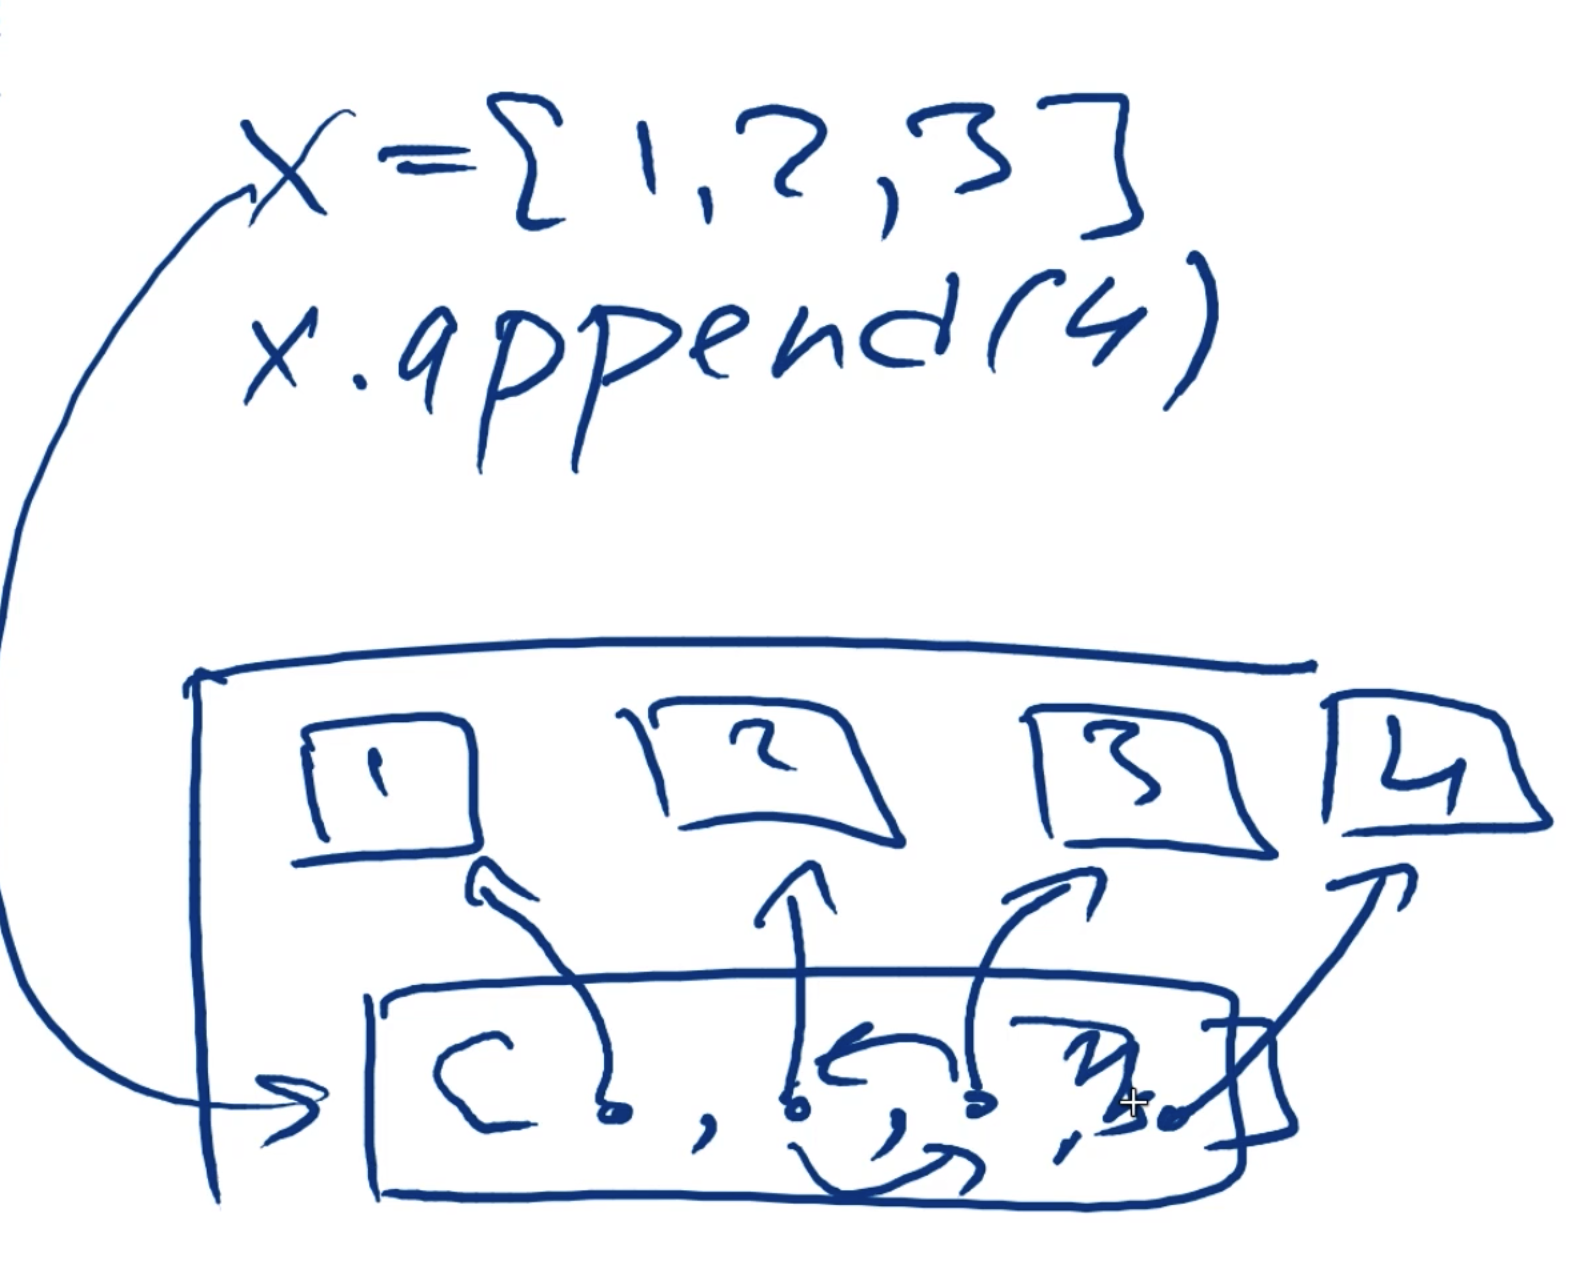 x=[1,2,3]
x.append(4)
1 2 3 4
[ , , , ]